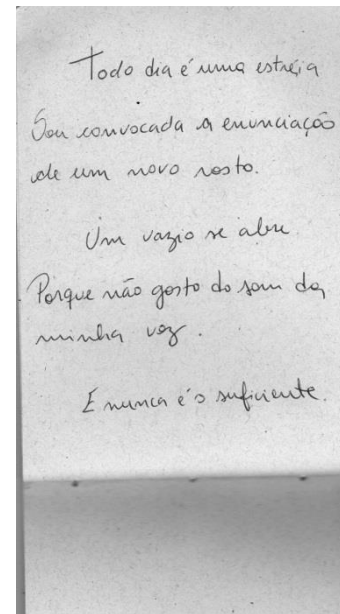 Todo dia é uma estréia
Sou convocada a enunciação
de um novo rosto.
Um vazio se abre
Porque não gosto do som da
minha voz.
E nunca é o suficiente.